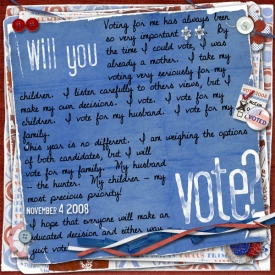 Will you
Voting for me has always been
so very important. By
the time I could vote, I was
already a mother. I take my
voting very seriously for my
children. I listen carefully to others views, but I
make my own decisions. I vote. I vote for my
children. I vote for my husband. I vote for my
family.
This year is no different. I am weighing the options
of both candidates, but I will
vote for my family. My husband
- the hunter. My children - my
most precious priority!
NOVEMBER 4 2008
I hope that everyone will make an
educated decision and either way
just vote
vote?
I VOTED